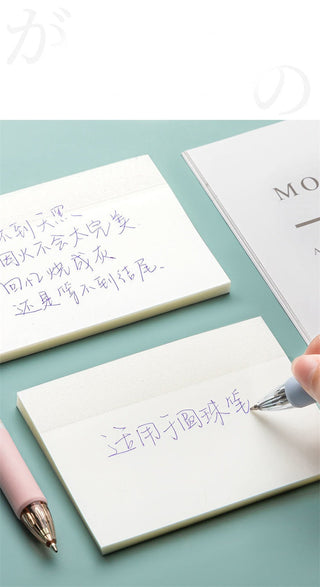 が
の
不到天黑
烟火不会太完美
回忆烧成灰
还是等不到结尾.
MO
A
适用于圆珠笔